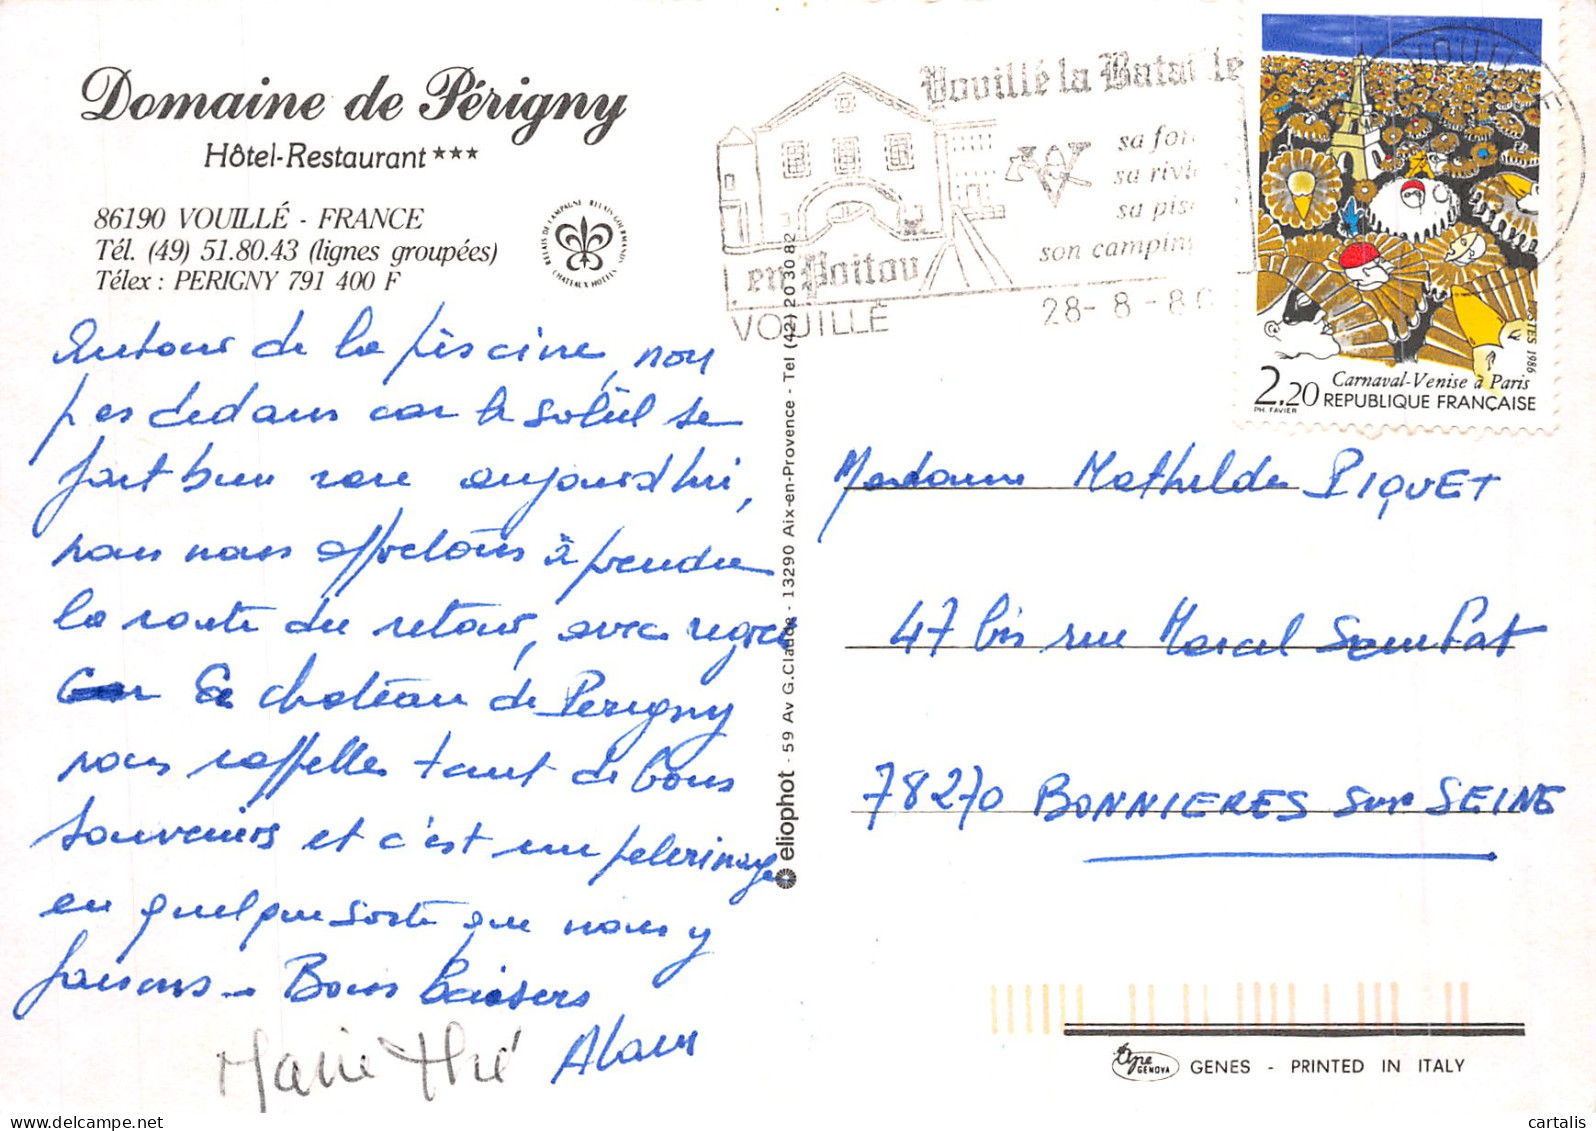 Domaine de Périgny
Hôtel-Restaurant ***
86190 VOUILLÉ - FRANCE
Tél. (49) 51.80.43 (lignes groupées)
Télex : PERIGNY 791 400 F
RELAIS DE CAMPAGNE RELAIS GOURMANDS CHATEAUX HOTELS
Autour de la piscine, non
pas dedans car le soleil se
fait bien rare aujourd'hui,
nous nous apprêtons à prendre
la route du retour, avec regret
car le château de Périgny
nous rappelle tant de bons
souvenirs et c'est un pelerinage
en quelque sorte que nous y
faisons - Bons baisers
Alain
Marie Thé
eliophot - 59 Av G.Claude - 13290 Aix-en-Provence - Tel (42) 20 30 82
Vouillé la Bataille
sa for
sa rivi
sa pis
son camping
en Poitou
VOUILLÉ
28-8-86
VOUILLE
POSTES 1986
Carnaval-Venise à Paris
2.20 REPUBLIQUE FRANÇAISE
PH. FAVIER
Madame Mathilde PIQUET
47 bis rue Marcel Sembat
78270 BONNIERES sur SEINE
GENOVA
GENES - PRINTED IN ITALY
cartalis